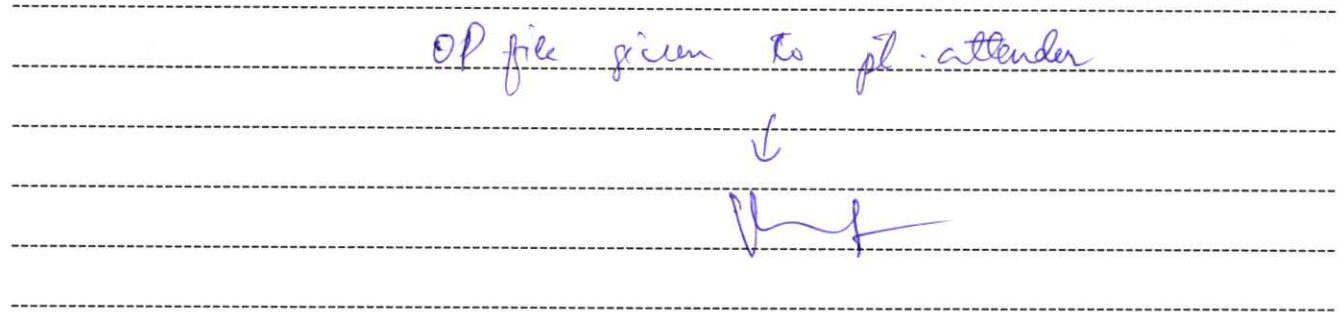 OP file given to pt. attender
↓